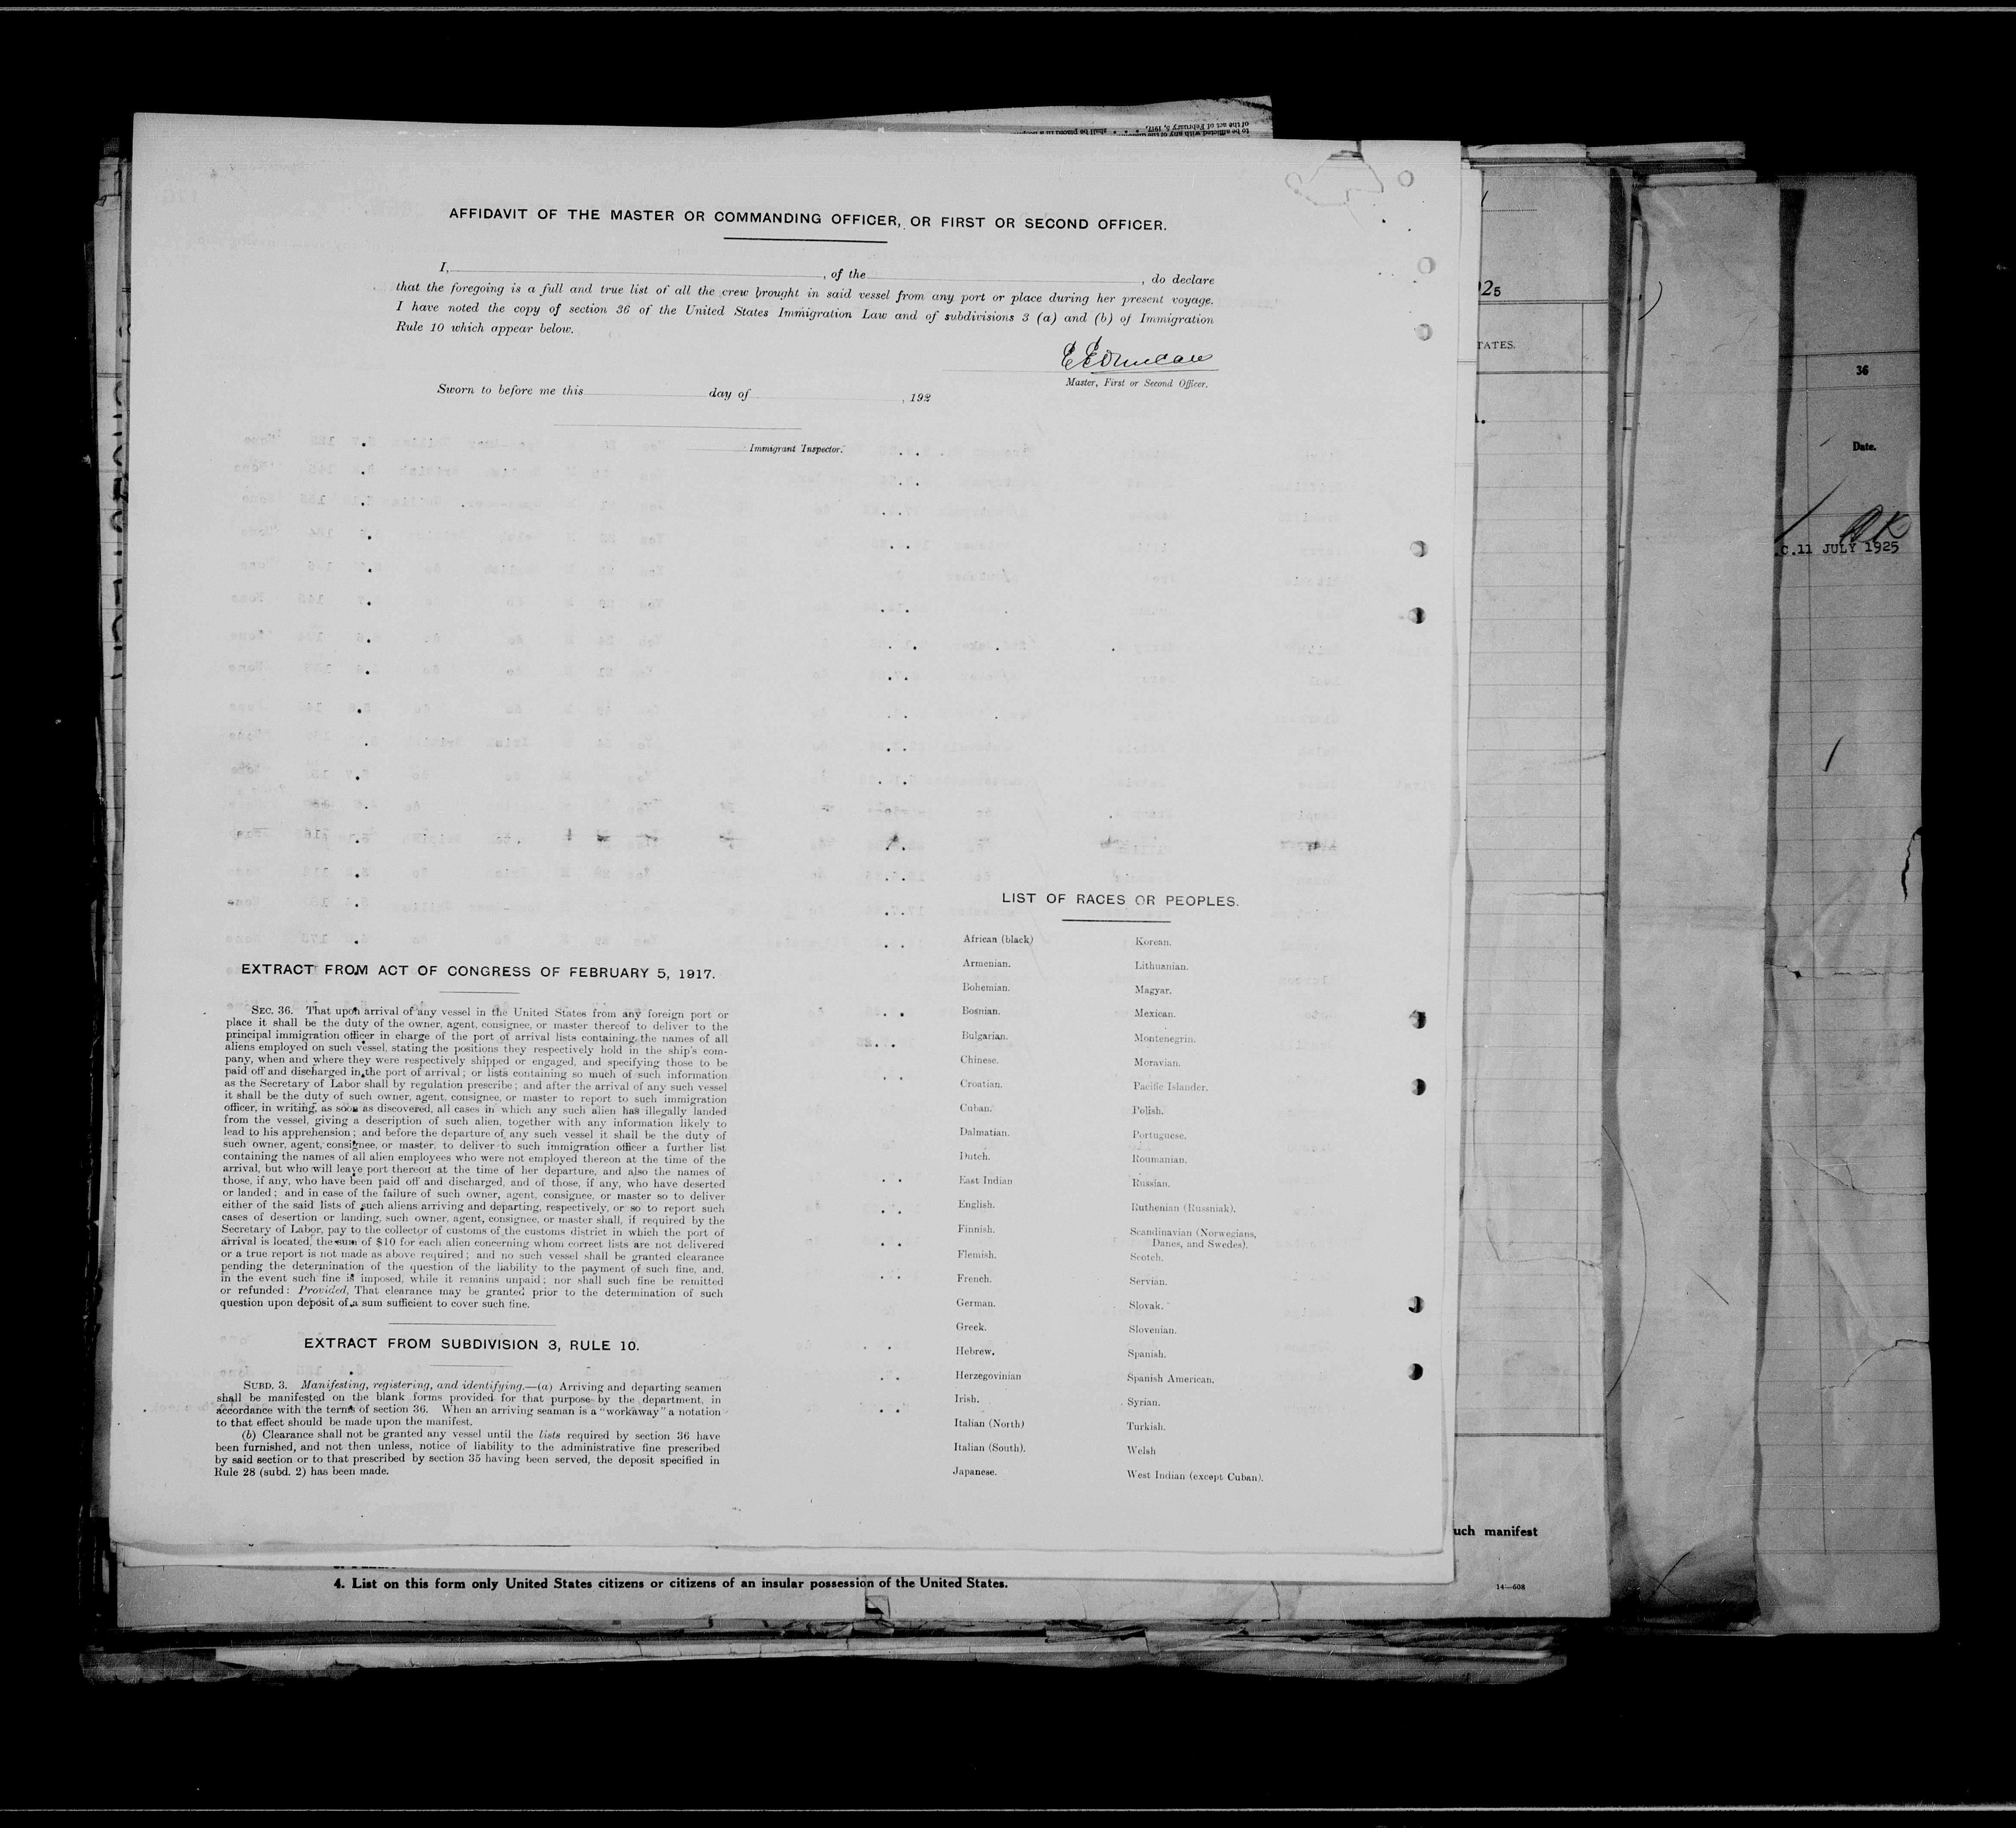 to be afflicted with any of the
of the act of February 5, 1917.
shall be placed in a
AFFIDAVIT OF THE MASTER OR COMMANDING OFFICER, OR FIRST OR SECOND OFFICER.
I, , of the , do declare
that the foregoing is a full and true list of all the crew brought in said vessel from any port or place during her present voyage.
I have noted the copy of section 36 of the United States Immigration Law and of subdivisions 3 (a) and (b) of Immigration
Rule 10 which appear below.
E E Duncan
Master, First or Second Officer.
Sworn to before me this day of , 192
Immigrant Inspector.
EXTRACT FROM ACT OF CONGRESS OF FEBRUARY 5, 1917.
SEC. 36. That upon arrival of any vessel in the United States from any foreign port or
place it shall be the duty of the owner, agent, consignee, or master thereof to deliver to the
principal immigration officer in charge of the port of arrival lists containing the names of all
aliens employed on such vessel, stating the positions they respectively hold in the ship's com-
pany, when and where they were respectively shipped or engaged, and specifying those to be
paid off and discharged in the port of arrival; or lists containing so much of such information
as the Secretary of Labor shall by regulation prescribe; and after the arrival of any such vessel
it shall be the duty of such owner, agent, consignee, or master to report to such immigration
officer, in writing, as soon as discovered, all cases in which any such alien has illegally landed
from the vessel, giving a description of such alien, together with any information likely to
lead to his apprehension; and before the departure of any such vessel it shall be the duty of
such owner, agent, consignee, or master, to deliver to such immigration officer a further list
containing the names of all alien employees who were not employed thereon at the time of the
arrival, but who will leave port thereon at the time of her departure, and also the names of
those, if any, who have been paid off and discharged, and of those, if any, who have deserted
or landed; and in case of the failure of such owner, agent, consignee, or master so to deliver
either of the said lists of such aliens arriving and departing, respectively, or so to report such
cases of desertion or landing, such owner, agent, consignee, or master shall, if required by the
Secretary of Labor, pay to the collector of customs of the customs district in which the port of
arrival is located, the sum of $10 for each alien concerning whom correct lists are not delivered
or a true report is not made as above required; and no such vessel shall be granted clearance
pending the determination of the question of the liability to the payment of such fine, and,
in the event such fine is imposed, while it remains unpaid; nor shall such fine be remitted
or refunded: Provided, That clearance may be granted prior to the determination of such
question upon deposit of a sum sufficient to cover such fine.
EXTRACT FROM SUBDIVISION 3, RULE 10.
SUBD. 3. Manifesting, registering, and identifying.—(a) Arriving and departing seamen
shall be manifested on the blank forms provided for that purpose by the department, in
accordance with the terms of section 36. When an arriving seaman is a "workaway" a notation
to that effect should be made upon the manifest.
(b) Clearance shall not be granted any vessel until the lists required by section 36 have
been furnished, and not then unless, notice of liability to the administrative fine prescribed
by said section or to that prescribed by section 35 having been served, the deposit specified in
Rule 28 (subd. 2) has been made.
LIST OF RACES OR PEOPLES.
African (black)
Armenian.
Bohemian.
Bosnian.
Bulgarian.
Chinese.
Croatian.
Cuban.
Dalmatian.
Dutch.
East Indian
English.
Finnish.
Flemish.
French.
German.
Greek.
Hebrew.
Herzegovinian
Irish.
Italian (North)
Italian (South).
Japanese.
Korean.
Lithuanian.
Magyar.
Mexican.
Montenegrin.
Moravian.
Pacific Islander.
Polish.
Portuguese.
Roumanian.
Russian.
Ruthenian (Russniak).
Scandinavian (Norwegians,
Danes, and Swedes).
Scotch.
Servian.
Slovak.
Slovenian.
Spanish.
Spanish American.
Syrian.
Turkish.
Welsh
West Indian (except Cuban).
4. List on this form only United States citizens or citizens of an insular possession of the United States.
25
TATES.
uch manifest
14—608
36
Date.
OK
.C.11 JULY 1925